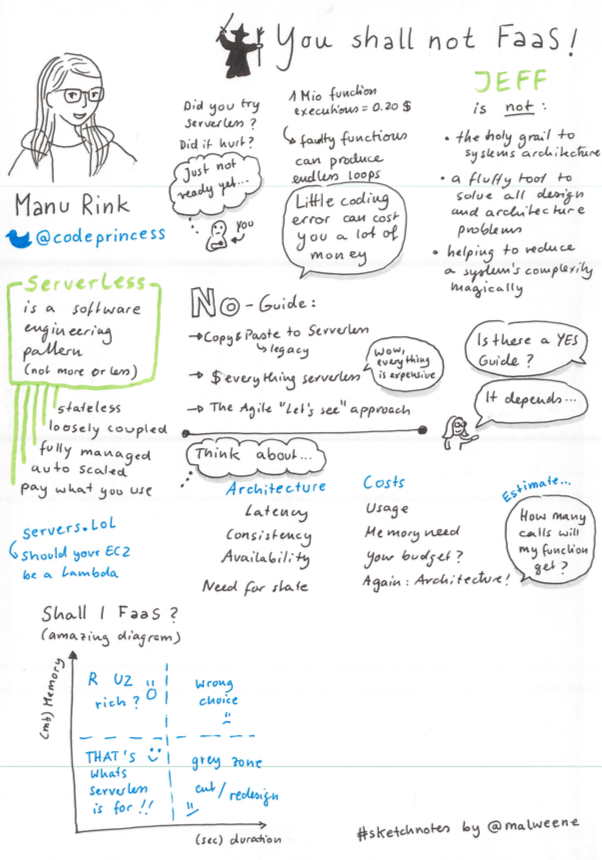 You shall not FaaS!
Manu Rink
@codeprincess
Did you try
serverless?
Did it hurt?
Just not
ready yet...
YOU
1 Mio function
executions = 0.20 $
faulty functions
can produce
endless loops
Little coding
error can cost
you a lot of
money
JEFF
is not:
• the holy grail to
systems architecture
• a fluffy tool to
solve all design
and architecture
problems
• helping to reduce
a system's complexity
magically
Serverless
is a software
engineering
pattern
(not more or less)
stateless
loosely coupled
fully managed
auto scaled
pay what you use
servers.LOL
should your EC2
be a Lambda
No-Guide:
→ Copy & Paste to Serverless
legacy
→ $ everything serverless
Wow,
everything
is expensive
→ The Agile "Let's see" approach
Is there a YES
Guide?
It depends...
Think about...
Architecture
Latency
Consistency
Availability
Need for state
Costs
Usage
Memory need
Your budget?
Again: Architecture!
Estimate...
How many
calls will
my function
get?
Shall I FaaS?
(amazing diagram)
(mb) Memory
R UZ
rich?
wrong
choice
THAT'S
whats
serverless
is for!!
grey zone
cut/redesign
(sec) duration
#sketchnotes by @malweene